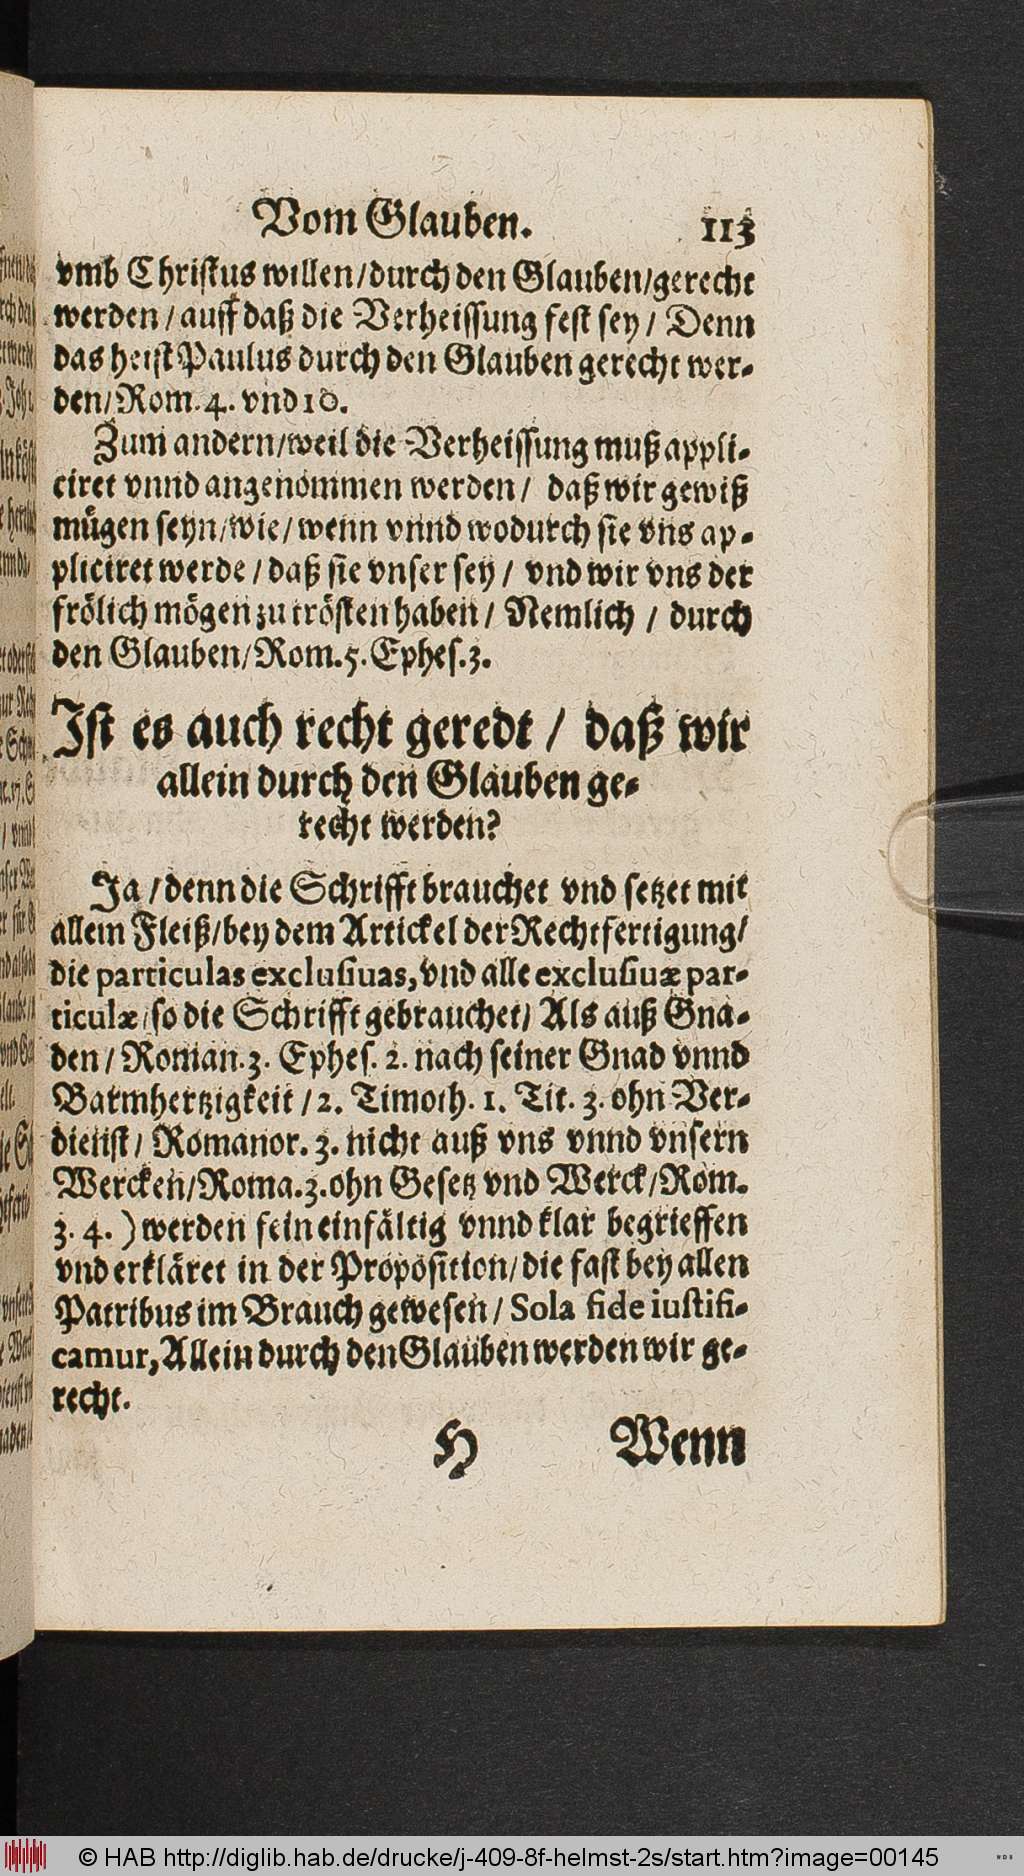 Vom Glauben. 113
vmb Christus willen/durch den Glauben/gerecht
werden/auff daß die Verheissung fest sey/ Denn
das heist Paulus durch den Glauben gerecht wer-
den/Rom. 4. vnd 10.
Zum andern/weil die Verheissung muß appli-
ciret vnnd angenommen werden/ daß wir gewiß
mügen seyn/wie/wenn vnnd wodurch sie vns ap-
pliciret werde/daß sie vnser sey/ vnd wir vns der
frölich mögen zu trösten haben/ Nemlich/ durch
den Glauben/Rom.5. Ephes.3.
Ist es auch recht geredt/ daß wir
allein durch den Glauben ge-
recht werden?
Ja/denn die Schrifft brauchet vnd setzet mit
allem Fleiß/bey dem Artickel der Rechtfertigung/
die particulas exclusiuas, vnd alle exclusiuæ par-
ticulæ/so die Schrifft gebrauchet/ Als auß Gna-
den/ Roman.3. Ephes. 2. nach seiner Gnad vnnd
Barmhertzigkeit/2. Timoth. 1. Tit. 3. ohn Ver-
dienst/ Romanor. 3. nicht auß vns vnnd vnsern
Wercken/Roma.3. ohn Gesetz vnd Werck/Rom.
3. 4. ) werden fein einfältig vnnd klar begrieffen
vnd erkläret in der Proposition/die fast bey allen
Patribus im Brauch gewesen/ Sola fide iustifi-
camur, Allein durch den Glauben werden wir ge-
recht.
H Wenn
© HAB http://diglib.hab.de/drucke/j-409-8f-helmst-2s/start.htm?image=00145